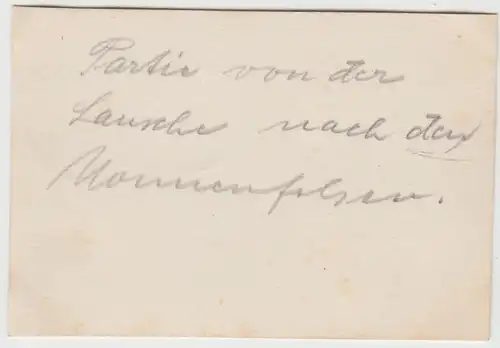 Partie von der
Lausche nach den
Nonnenfelsen.